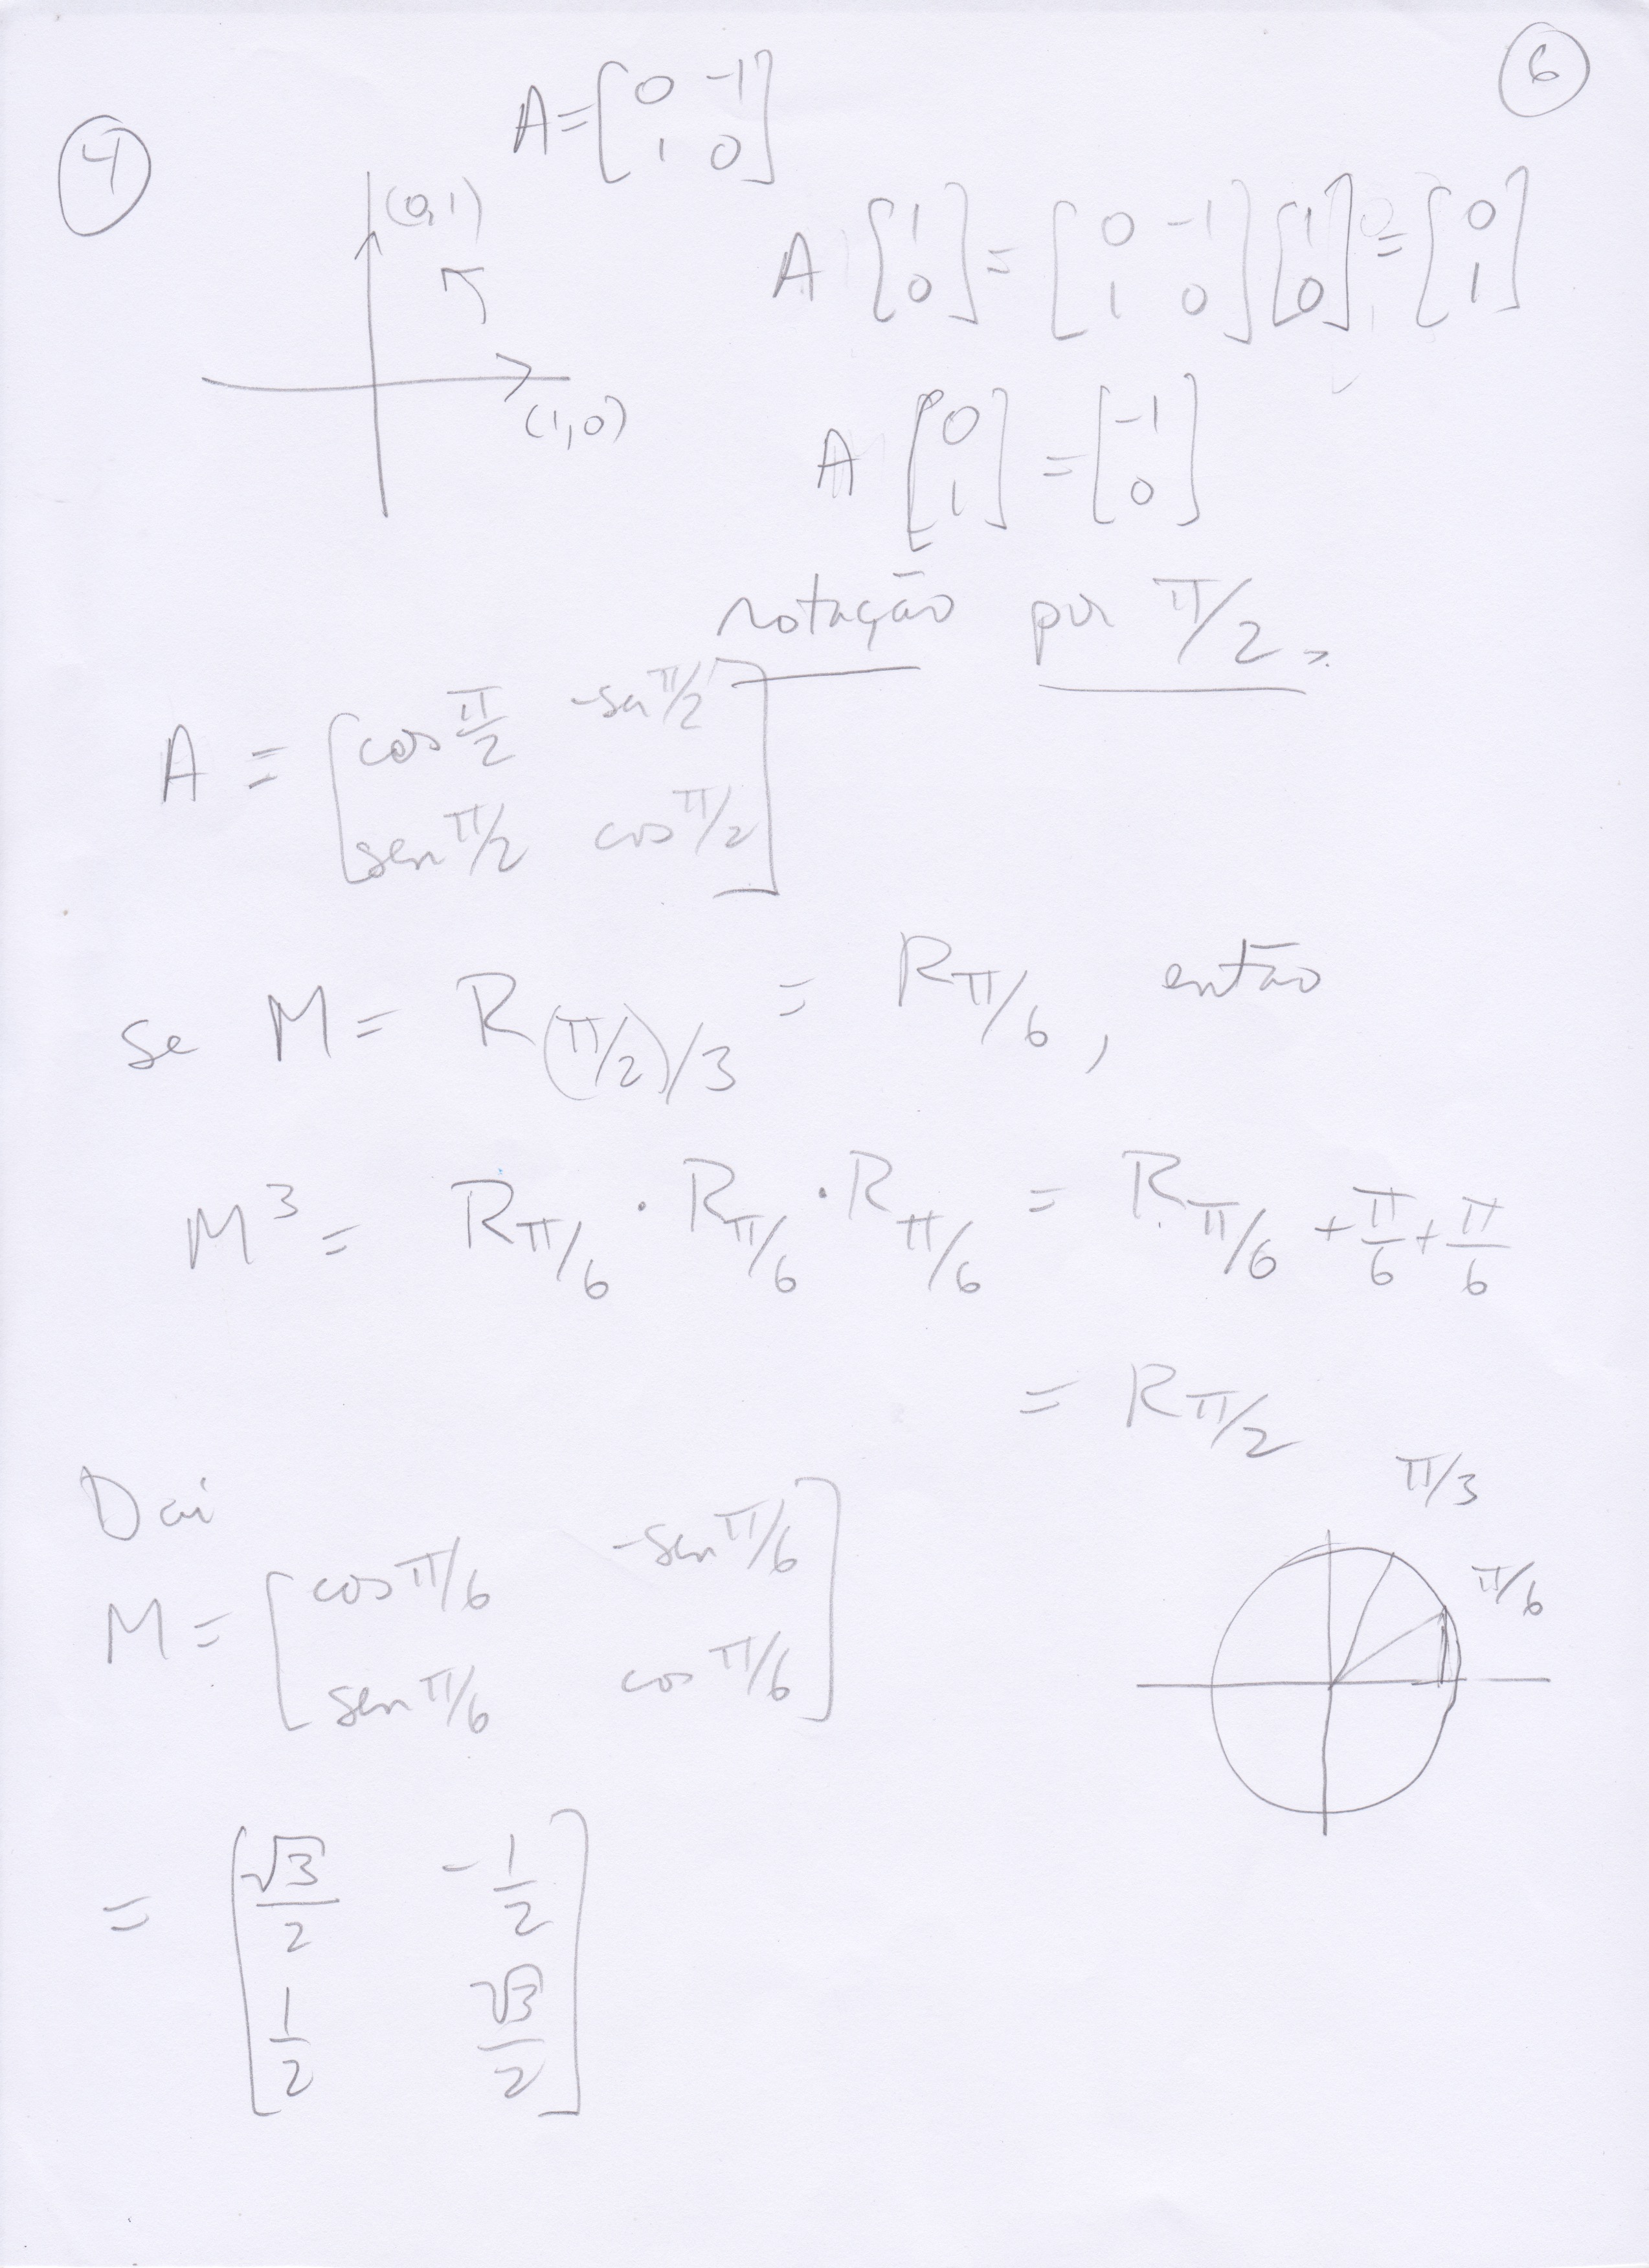 6
4
A = [0 -1; 1 0]
(0,1)
(1,0)
A [1; 0] = [0 -1; 1 0] [1; 0] = [0; 1]
A [0; 1] = [-1; 0]
rotação por π/2.
A = [cos π/2 -sen π/2; sen π/2 cos π/2]
Se M = R_(π/2)/3 = R_π/6, então
M³ = R_π/6 · R_π/6 · R_π/6 = R_π/6 + π/6 + π/6
= R_π/2
Daí
π/3
π/6
M = [cos π/6 -sen π/6; sen π/6 cos π/6]
= [√3/2 -1/2; 1/2 √3/2]